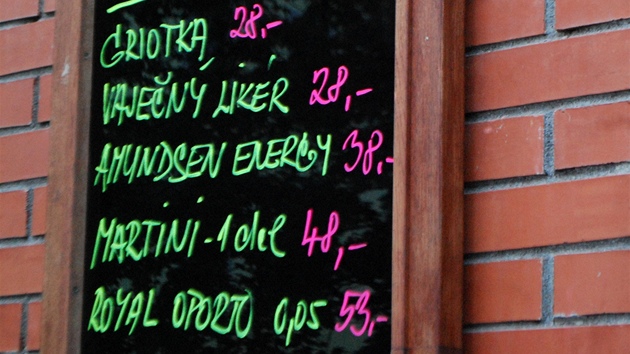 GRIOTKA 28,-
VAJEČNÝ LIKÉR 28,-
AMUNDSEN ENERGY 38,-
MARTINI - 1 dcl 48,-
ROYAL OPORTO 0,05 53,-